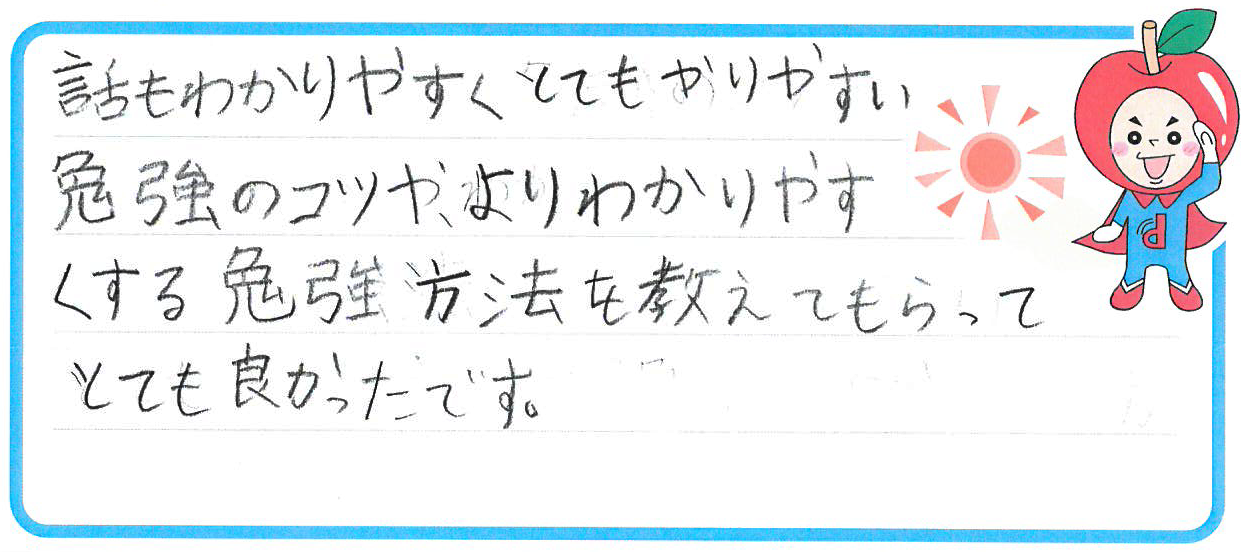 話もわかりやすくとてもやりやすい
勉強のコツや、よりわかりやす
くする勉強方法を教えてもらって
とても良かったです。